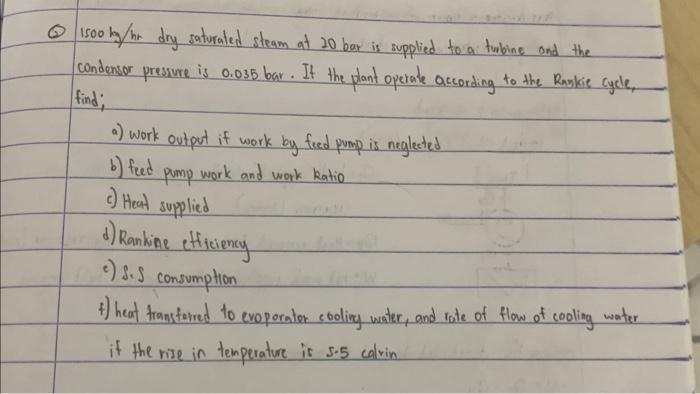 ⑥ 1500 kg/hr dry saturated steam at 20 bar is supplied to a turbine and the
condensor pressure is 0.035 bar. If the plant operate according to the Rankie cycle,
find;
a) work output if work by feed pump is neglected
b) feed pump work and work Ratio
c) Heat supplied
d) Rankine efficiency
e) S.S consumption
f) heat transferred to evoporator cooling water, and rate of flow of cooling water
if the rise in temperature is 5.5 calvin